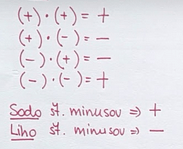 (+) · (+) = +
(+) · (-) = -
(-) · (+) = -
(-) · (-) = +
Sodo št. minusov => +
Liho št. minusov => -